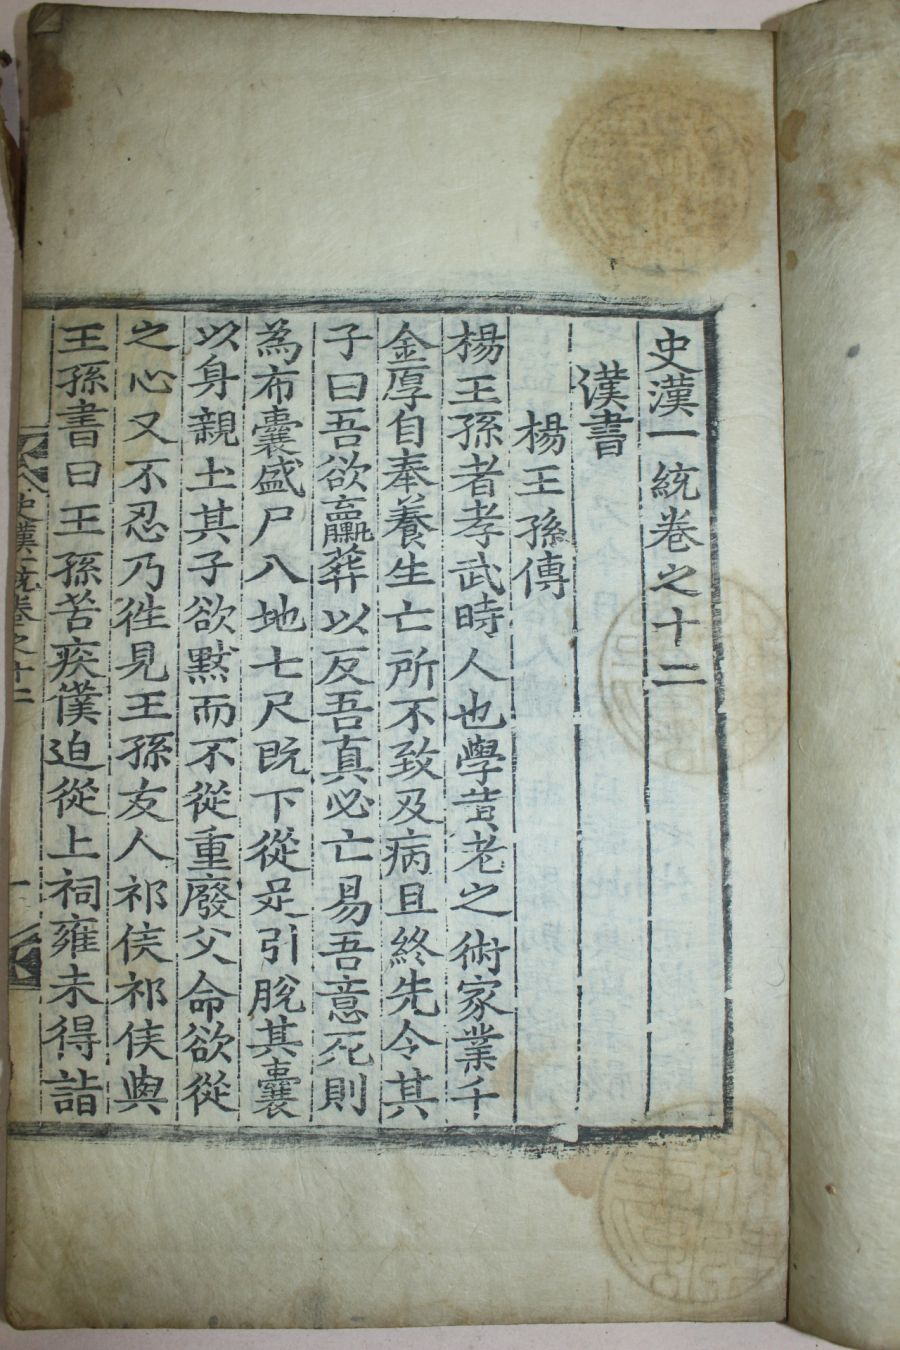 史漢一統卷之十二
漢書
楊王孫傳
楊王孫者孝武時人也學黃老之術家業千
金厚自奉養生亡所不致及病且終先令其
子曰吾欲臝葬以反吾真必亡易吾意死則
為布囊盛尸入地七尺既下從足引脫其囊
以身親土其子欲黙而不從重廢父命欲從
之心又不忍乃徃見王孫友人祁侯祁侯與
王孫書曰王孫苦疾僕迫從上祠雍未得詣
史漢一統卷之十二
一